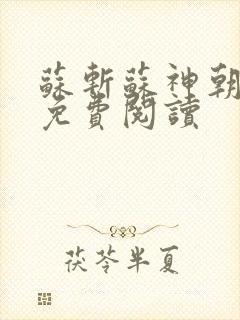 蘇斬蘇神朝
免費閱讀
茯苓半夏